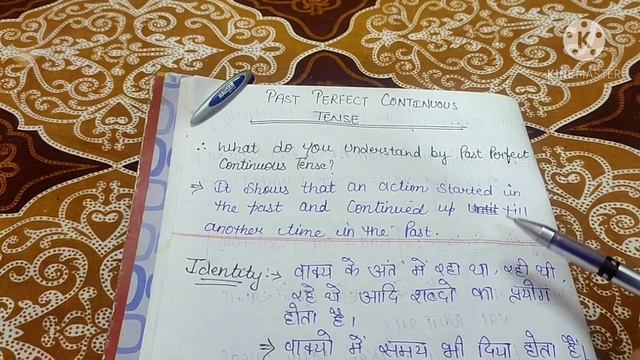 KINEMASTER
PAST PERFECT CONTINUOUS
TENSE
∴ What do you understand by Past Perfect
Continuous Tense?
⇒ It shows that an action started in
the past and Continued up till
another time in the Past.
Identity :→ वाक्य के अंत में रहा था, रही थी,
रहे थे आदि शब्दो का प्रयोग
होता है।
⇒ वाक्यो में समय भी दिया होता है।